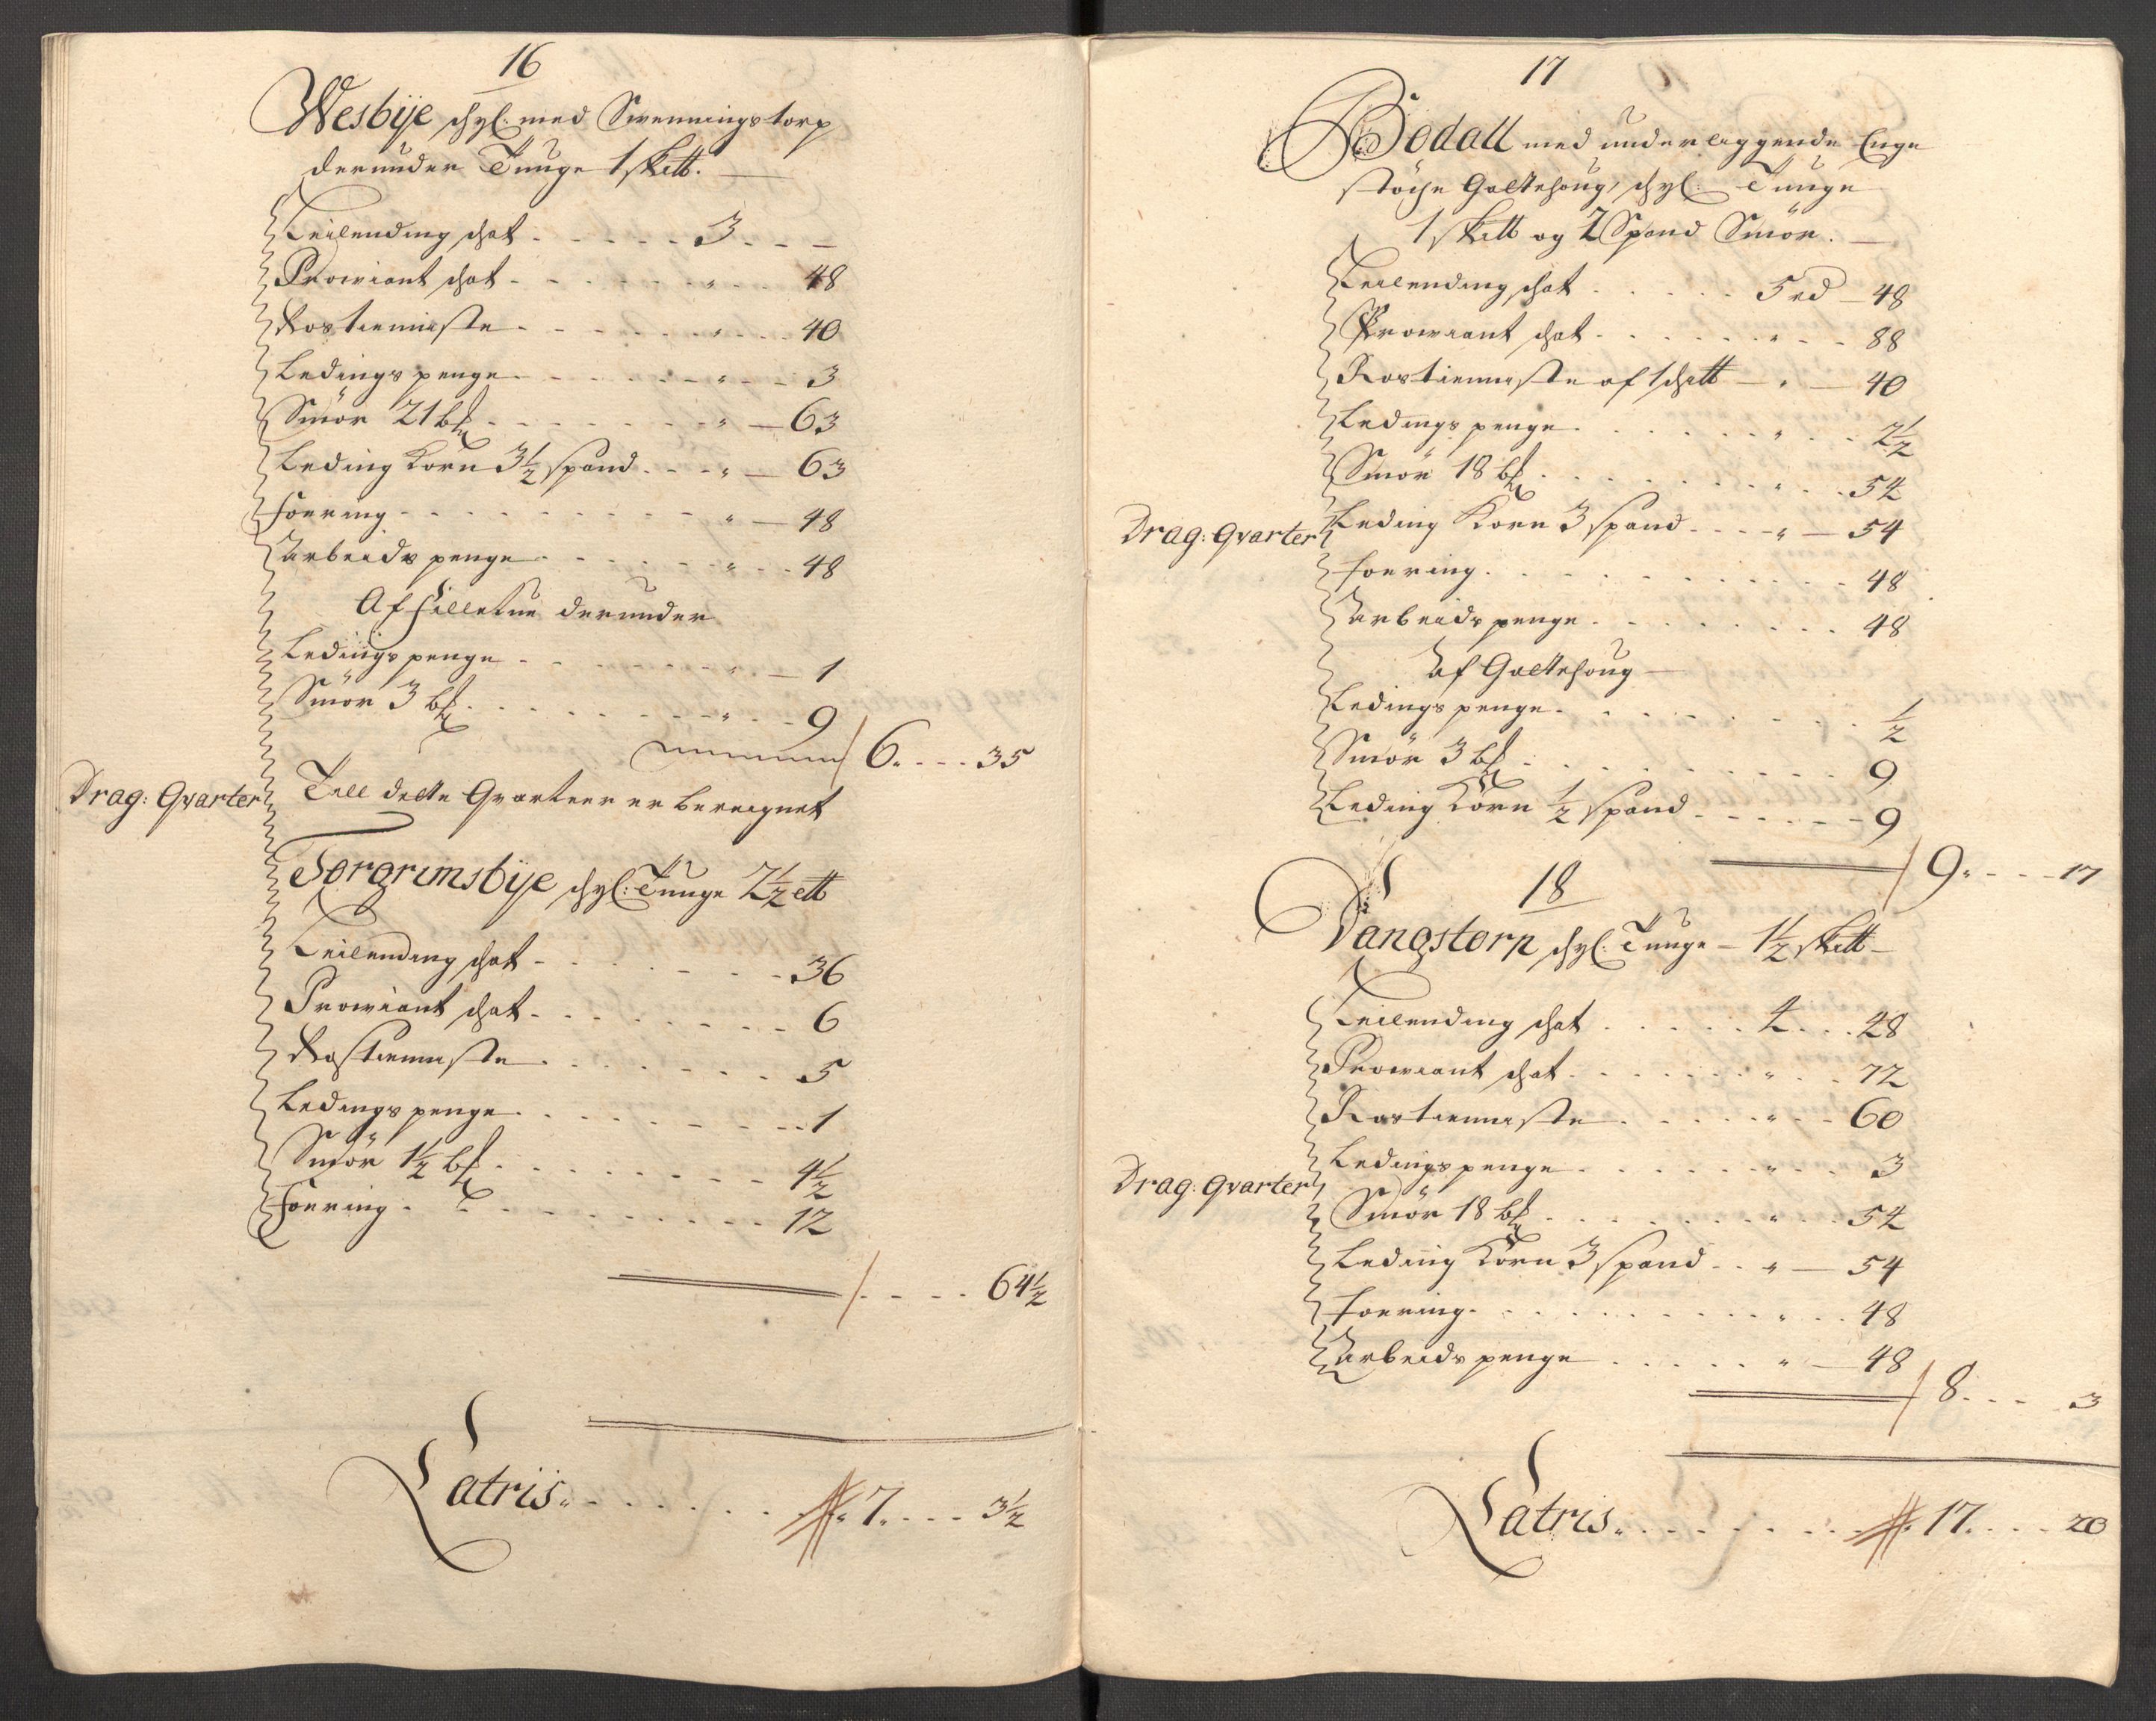 16
Wesbÿe schÿl: med Swenningstorp
derunder Tunge 1 skått.
Leilending schat - - - - - 3 - - -
Prowiant schat - - - - - - " - - 48
Rostienniste - - - - - - " - - 40
Ledings penge - - - - - - " - - 3
Smör 21 bl - - - - - - " - 63
Leding Korn 3½ spand - - - " - 63
foering - - - - - - - - " - 48
Arbeids penge - - - - - " - - 48
Af Hilletue derunder
Ledings penge - - - - - - " - 1
Smör 3 bl - - - - - - - " - - 9
6 - - - 35
Drag: Qvarter Till dette Qvarteer er bereignet
Torgrimsbÿe schÿl: Tunge 2½ ett
Leilending schat - - - - - - - 36
Prowiant schat - - - - - - - - 6
Rostienniste - - - - - - - 5
Ledings penge - - - - - - - - 1
Smör 1½ bl - - - - - - - - 4½
foering - - - - - - - - - 12
- - - - 64½
Latris - - - - - - 7 - - - 3½
17
Bödall med underliggende Enge
støche Goltehoug, schÿl: Tunge
1 skått og 2 Spand Smör.
Leilending schat - - - - 5 rd - 48
Prowiant schat - - - - - - " - - 88
Rostienniste af 1 skatt - " - 40
Ledings penge - - - - - - " - - 2½
Smör 18 bl - - - - - - - " - - 54
Drag: Qvarter Leding Korn 3 spand - - - " - 54
foering - - - - - - - - - - 48
Arbeids penge - - - - - - - - 48
Af Goltehoug
Ledings penge - - - - - - - - ½
Smör 3 bl - - - - - - - - - 9
Leding Korn ½ spand - - - - - 9
9 - - - 17
18
Vangstorp schÿl: Tunge - 1½ skått
Leilending schat - - - - - 4 - - 48
Prowiant schat - - - - - - " - - 72
Rostienniste - - - - - - " - - 60
Ledings penge - - - - - - " - - 3
Drag: Qvarter Smör 18 bl - - - - - - - " - - 54
Leding Korn 3 spand - - " - 54
foering - - - - - - - - " - - 48
Arbeids penge - - - - - " - 48
8 - - - 3
Latris - - - - - - - 17 - - - 20